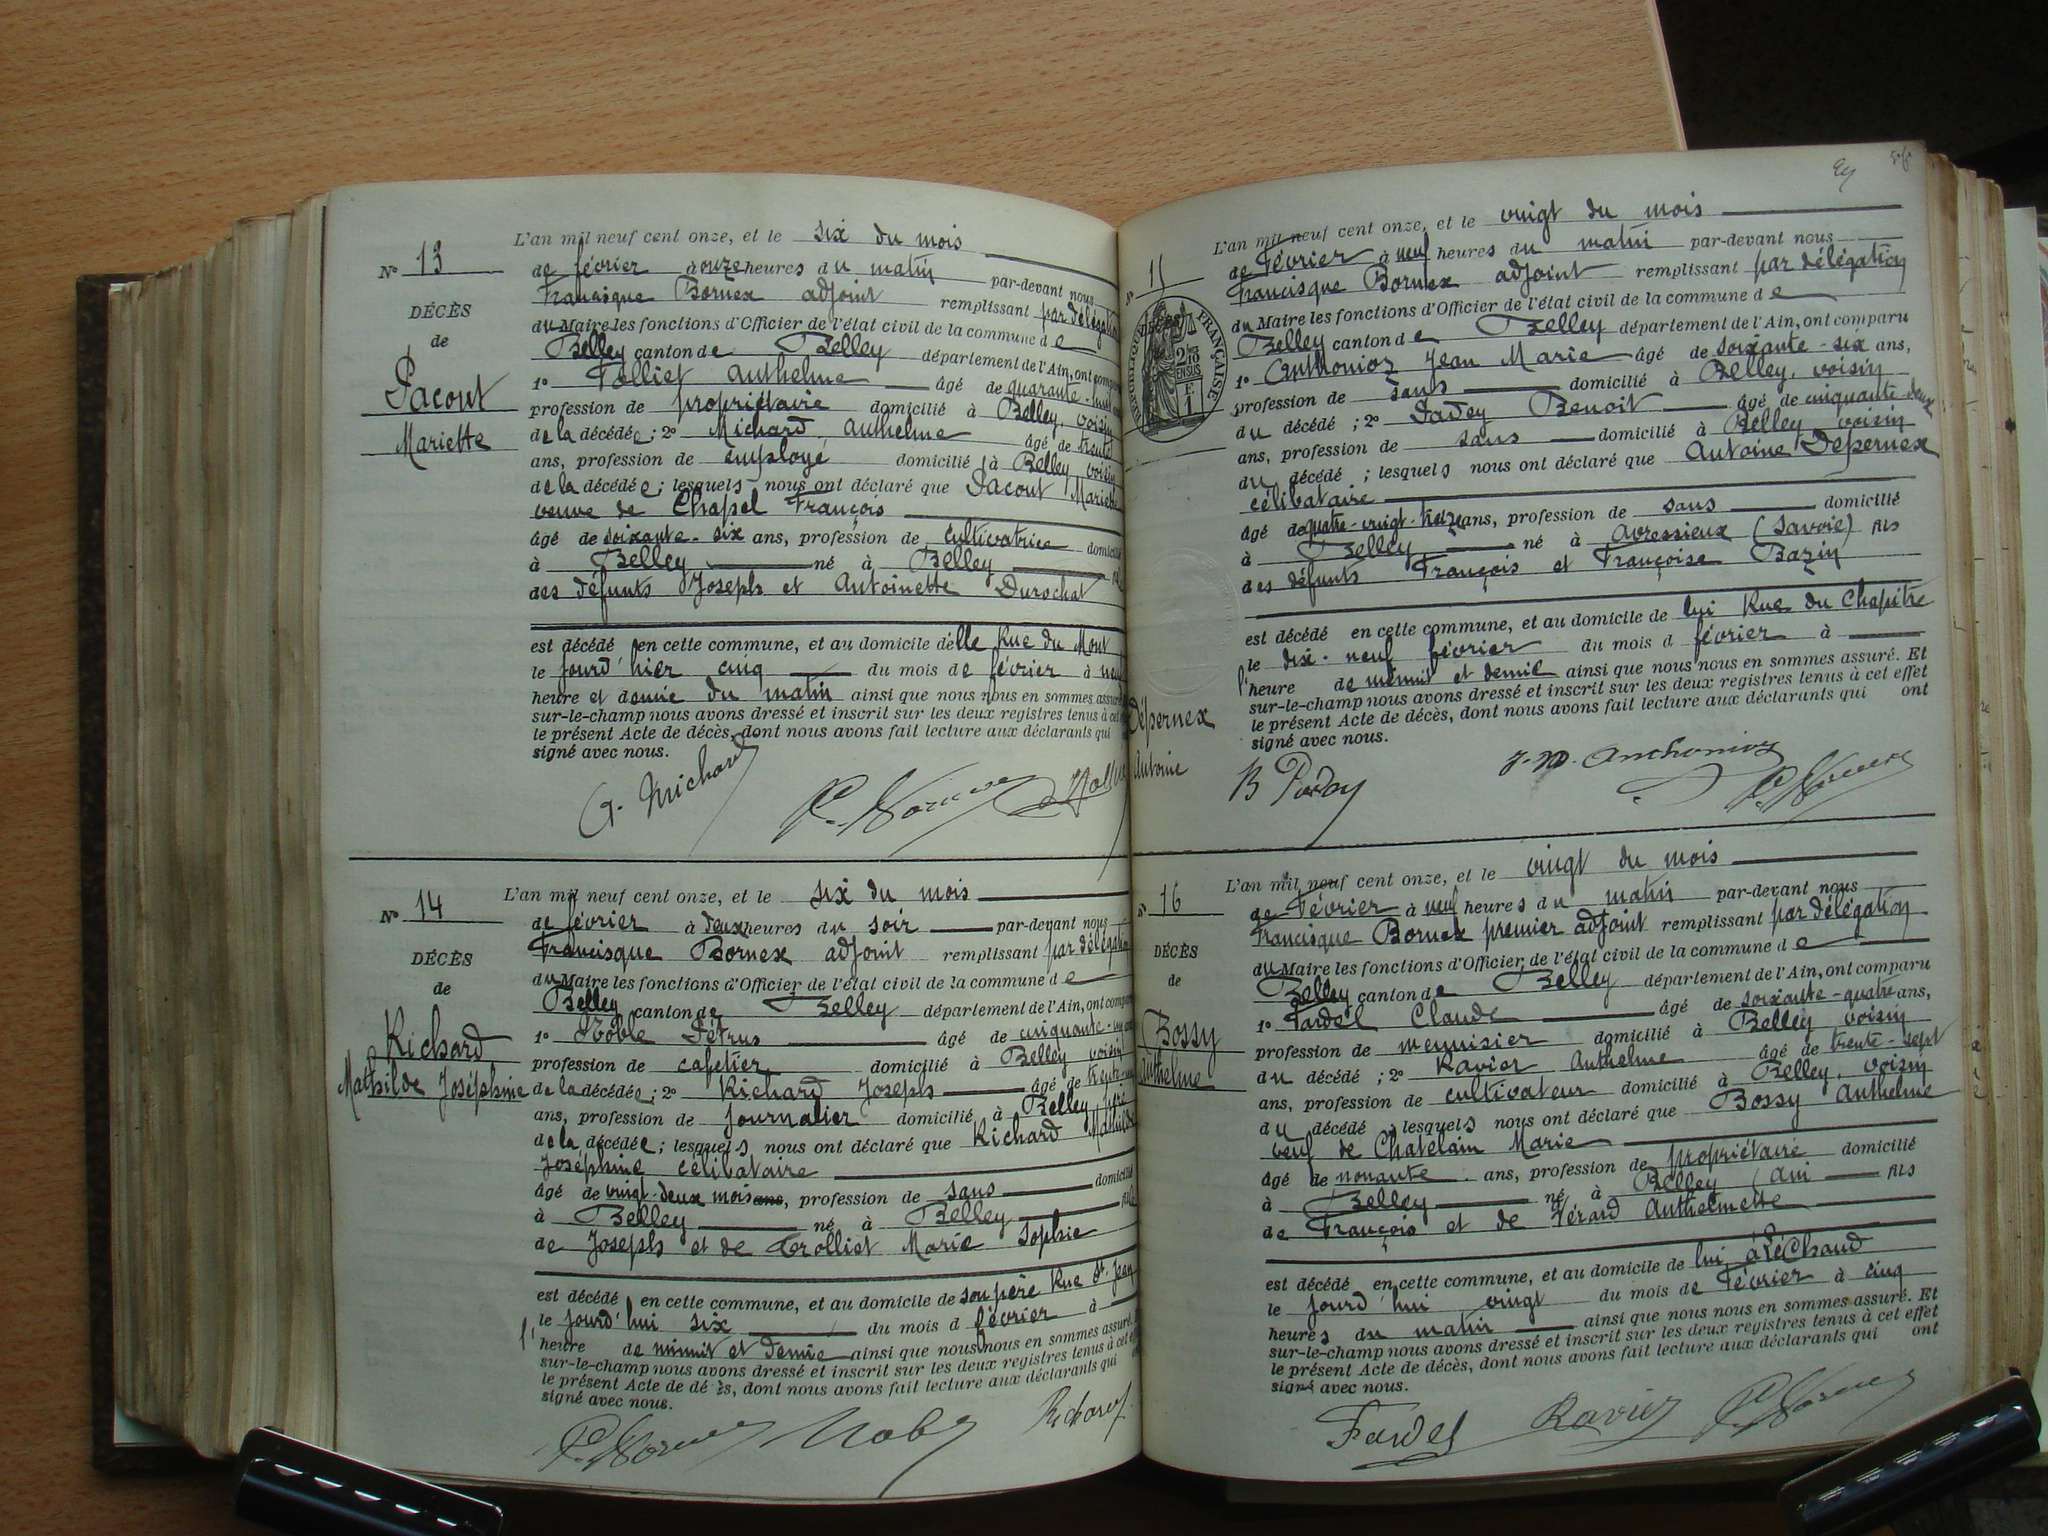 N° 13
DÉCÈS
de
Pacout
Mariette
L'an mil neuf cent onze, et le six du mois
de février à onze heures du matin par-devant nous
Francisque Bornex adjoint remplissant par délégation
du Maire les fonctions d'Officier de l'état civil de la commune de
Belley canton de Belley département de l'Ain, ont comparu
1° Tolliet Anthelme âgé de quarante-huit
profession de propriétaire domicilié à Belley, voisin
de la décédée; 2° Michard Anthelme âgé de trente
ans, profession de employé domicilié à Belley voisin
de la décédée; lesquels nous ont déclaré que Pacout Mariette
veuve de Chapel François
âgé de soixante-six ans, profession de cultivatrice domicilié
à Belley né à Belley
des défunts Joseph et Antoinette Durochat
est décédé en cette commune, et au domicile d'elle Rue du Mont
le jourd'hier cinq du mois de février à neuf
heure et demie du matin ainsi que nous nous en sommes assuré
sur-le-champ nous avons dressé et inscrit sur les deux registres tenus à cet
le présent Acte de décès, dont nous avons fait lecture aux déclarants qui
signé avec nous.
A. Michard
N° 14
DÉCÈS
de
Richard
Mathilde Joséphine
L'an mil neuf cent onze, et le six du mois
de février à deux heures du soir par-devant nous
Francisque Bornex adjoint remplissant par délégation
du Maire les fonctions d'Officier de l'état civil de la commune de
Belley canton de Belley département de l'Ain, ont comparu
1° Noble Pétrus âgé de cinquante-
profession de cafetier domicilié à Belley voisin
de la décédée; 2° Richard Joseph âgé de trente-
ans, profession de journalier domicilié à Belley, père
de la décédée; lesquels nous ont déclaré que Richard Mathilde
Joséphine célibataire
âgé de vingt-deux mois ans, profession de sans domicilié
à Belley né à Belley fille
de Joseph et de Trolliet Marie Sophie
est décédé en cette commune, et au domicile de son père Rue St. Jean
le jourd'hui six du mois d février à
l'heure de minuit et demie ainsi que nous nous en sommes assuré.
sur-le-champ nous avons dressé et inscrit sur les deux registres tenus à cet
le présent Acte de décès, dont nous avons fait lecture aux déclarants qui
signé avec nous.
Richard
N° 15
DÉCÈS
RÉPUBLIQUE FRANÇAISE
Depernex
Antoine
L'an mil neuf cent onze, et le vingt du mois
de Février à neuf heures du matin par-devant nous
Francisque Bornex adjoint remplissant par délégation
du Maire les fonctions d'Officier de l'état civil de la commune de
Belley canton de Belley département de l'Ain, ont comparu
1° Anthonioz Jean Marie âgé de soixante-six ans,
profession de sans domicilié à Belley, voisin
du décédé; 2° Parey Benoit âgé de cinquante-deux
ans, profession de sans domicilié à Belley voisin
du décédé; lesquels nous ont déclaré que Antoine Depernex
célibataire
âgé de quatre-vingt-treize ans, profession de sans domicilié
à Belley né à Avressieux (Savoie) fils
des défunts François et Françoise Bazin
est décédé en cette commune, et au domicile de lui Rue du Chapitre
le dix-neuf février du mois d février à
l'heure de minuit et demie ainsi que nous nous en sommes assuré. Et
sur-le-champ nous avons dressé et inscrit sur les deux registres tenus à cet effet
le présent Acte de décès, dont nous avons fait lecture aux déclarants qui ont
signé avec nous.
J. M. Anthonioz
N° 16
DÉCÈS
de
Bossy
Anthelme
L'an mil neuf cent onze, et le vingt du mois
de Février à neuf heures du matin par-devant nous
Francisque Bornex premier adjoint remplissant par délégation
du Maire les fonctions d'Officier de l'état civil de la commune de
Belley canton de Belley département de l'Ain, ont comparu
1° Fardel Claude âgé de soixante-quatre ans,
profession de menuisier domicilié à Belley voisin
du décédé; 2° Ravier Anthelme âgé de trente-sept
ans, profession de cultivateur domicilié à Belley, voisin
du décédé lesquels nous ont déclaré que Bossy Anthelme
veuf de Chatelain Marie
âgé de nonante ans, profession de propriétaire domicilié
à Belley né à Belley (Ain fils
de François et de Férard Anthelmette
est décédé en cette commune, et au domicile de lui,
le jourd'hui vingt du mois de Février à cinq
heures du matin ainsi que nous nous en sommes assuré. Et
sur-le-champ nous avons dressé et inscrit sur les deux registres tenus à cet effet
le présent Acte de décès, dont nous avons fait lecture aux déclarants qui ont
signé avec nous.
Fardel Ravier